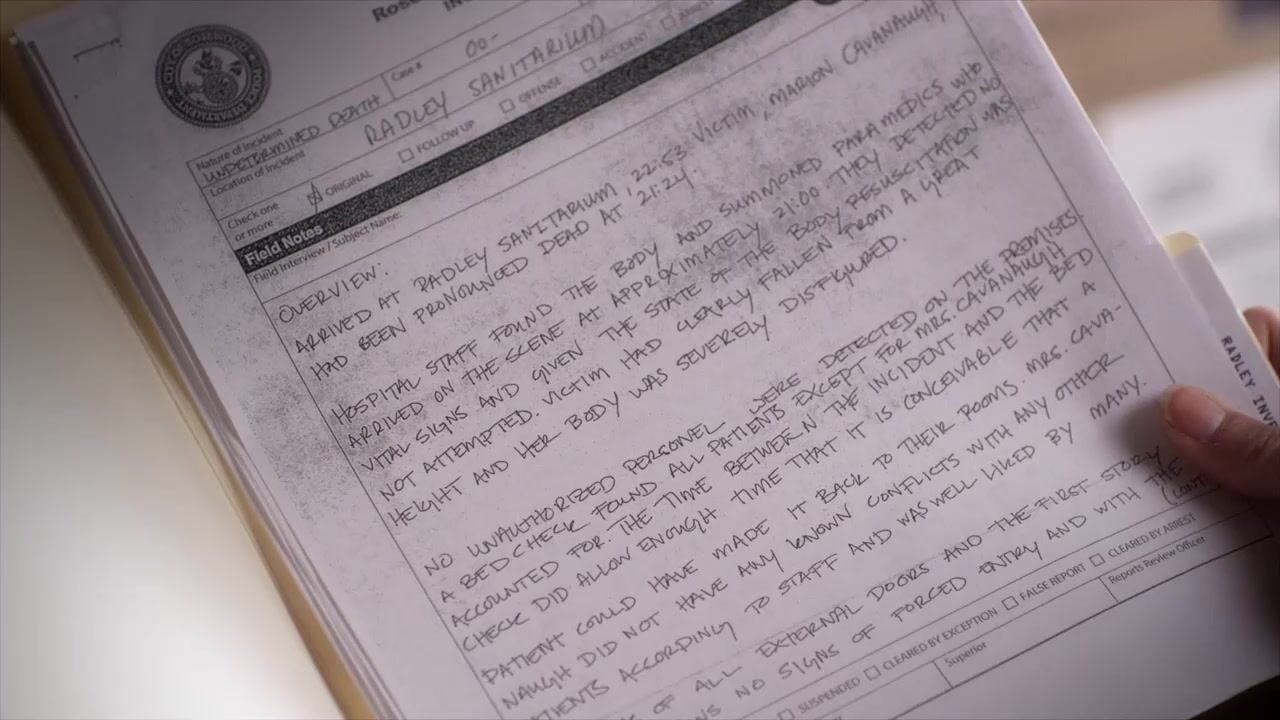 CITY OF ROSEWOOD
Nature of Incident
UNDETERMINED DEATH
Case #
00-
Location of Incident
RADLEY SANITARIUM
Check one
or more
ORIGINAL
FOLLOW UP
OFFENSE
ACCIDENT
Field Notes
Field Interview / Subject Name:
OVERVIEW:
ARRIVED AT RADLEY SANITARIUM, 22:53 VICTIM, MARION CAVANAUGH,
HAD BEEN PRONOUNCED DEAD AT 21:24.
HOSPITAL STAFF FOUND THE BODY AND SUMMONED PARAMEDICS WHO
ARRIVED ON THE SCENE AT APPROXIMATELY 21:00 THEY DETECTED NO
VITAL SIGNS AND GIVEN THE STATE OF THE BODY, RESUSCITATION WAS
NOT ATTEMPTED. VICTIM HAD CLEARLY FALLEN FROM A GREAT
HEIGHT AND HER BODY WAS SEVERELY DISFIGURED.
NO UNAUTHORIZED PERSONEL WERE DETECTED ON THE PREMISES.
A BED CHECK FOUND ALL PATIENTS EXCEPT FOR MRS. CAVANAUGH
ACCOUNTED FOR. THE TIME BETWEEN THE INCIDENT AND THE BED
CHECK DID ALLOW ENOUGH TIME THAT IT IS CONCEIVABLE THAT A
PATIENT COULD HAVE MADE IT BACK TO THEIR ROOMS. MRS. CAVA-
NAUGH DID NOT HAVE ANY KNOWN CONFLICTS WITH ANY OTHER
PATIENTS ACCORDING TO STAFF AND WAS WELL LIKED BY MANY.
OF ALL EXTERNAL DOORS AND THE FIRST STORY
NO SIGNS OF FORCED ENTRY AND WITH THE
(CONT.
SUSPENDED
CLEARED BY EXCEPTION
FALSE REPORT
CLEARED BY ARREST
Superior
Reports Review Officer
RADLEY INVE